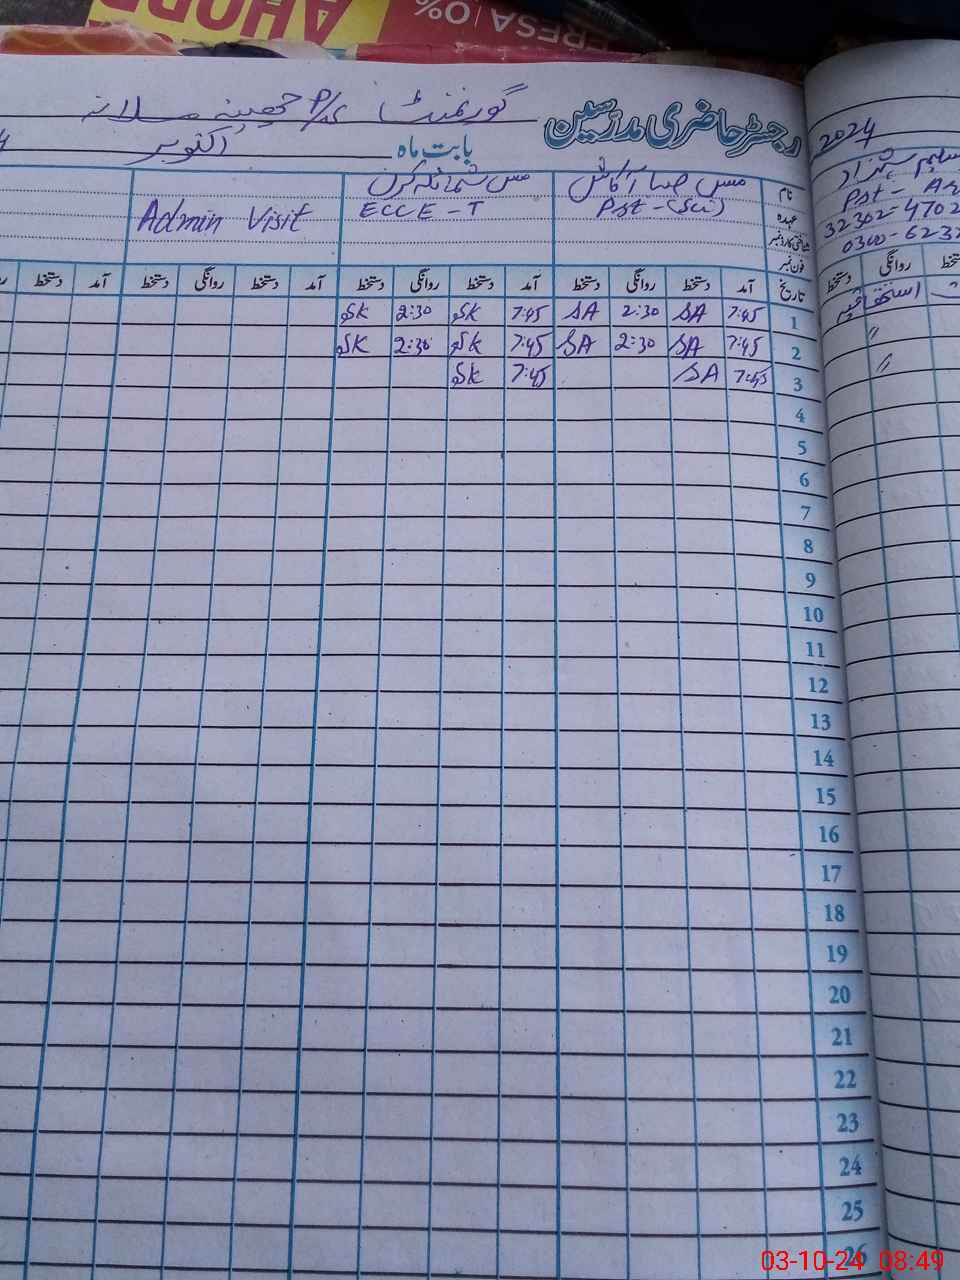 AHORE
ERESA 0%
رجسٹر حاضری مدرسین
گورنمنٹ P/S
بابت ماہ اکتوبر
2024
نام مس صبا آکاش
مس شمائلہ کرن
عہدہ Pst-(Sci)
ECCE-T
Admin Visit
شناختی کارڈ نمبر
فون نمبر
Pst-
32302-4702
0300-6232
تاریخ آمد دستخط روانگی دستخط آمد دستخط روانگی دستخط آمد دستخط روانگی دستخط آمد دستخط
روانگی دستخط
1 7:45 SA 2:30 SA 7:45 SK 2:30 SK
2 7:45 SA 2:30 SA 7:45 SK 2:30 SK
3 7:45 SA 7:45 SK
4
5
6
7
8
9
10
11
12
13
14
15
16
17
18
19
20
21
22
23
24
25
26
03-10-24 08:49